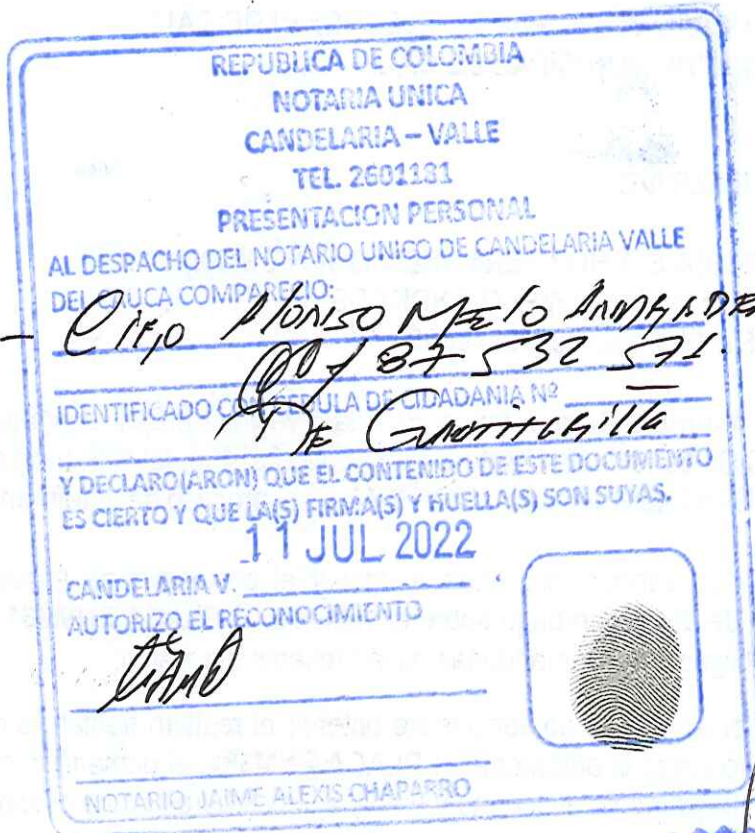 REPUBLICA DE COLOMBIA
NOTARIA UNICA
CANDELARIA – VALLE
TEL. 2601181
PRESENTACION PERSONAL
AL DESPACHO DEL NOTARIO UNICO DE CANDELARIA VALLE
DEL CAUCA COMPARECIO:
Alonso Melo
87 532 571
IDENTIFICADO CON CEDULA DE CIUDADANIA Nº
De
Y DECLARO(ARON) QUE EL CONTENIDO DE ESTE DOCUMENTO
ES CIERTO Y QUE LA(S) FIRMA(S) Y HUELLA(S) SON SUYAS.
11 JUL 2022
CANDELARIA V.
AUTORIZO EL RECONOCIMIENTO
NOTARIO: JAIME ALEXIS CHAPARRO